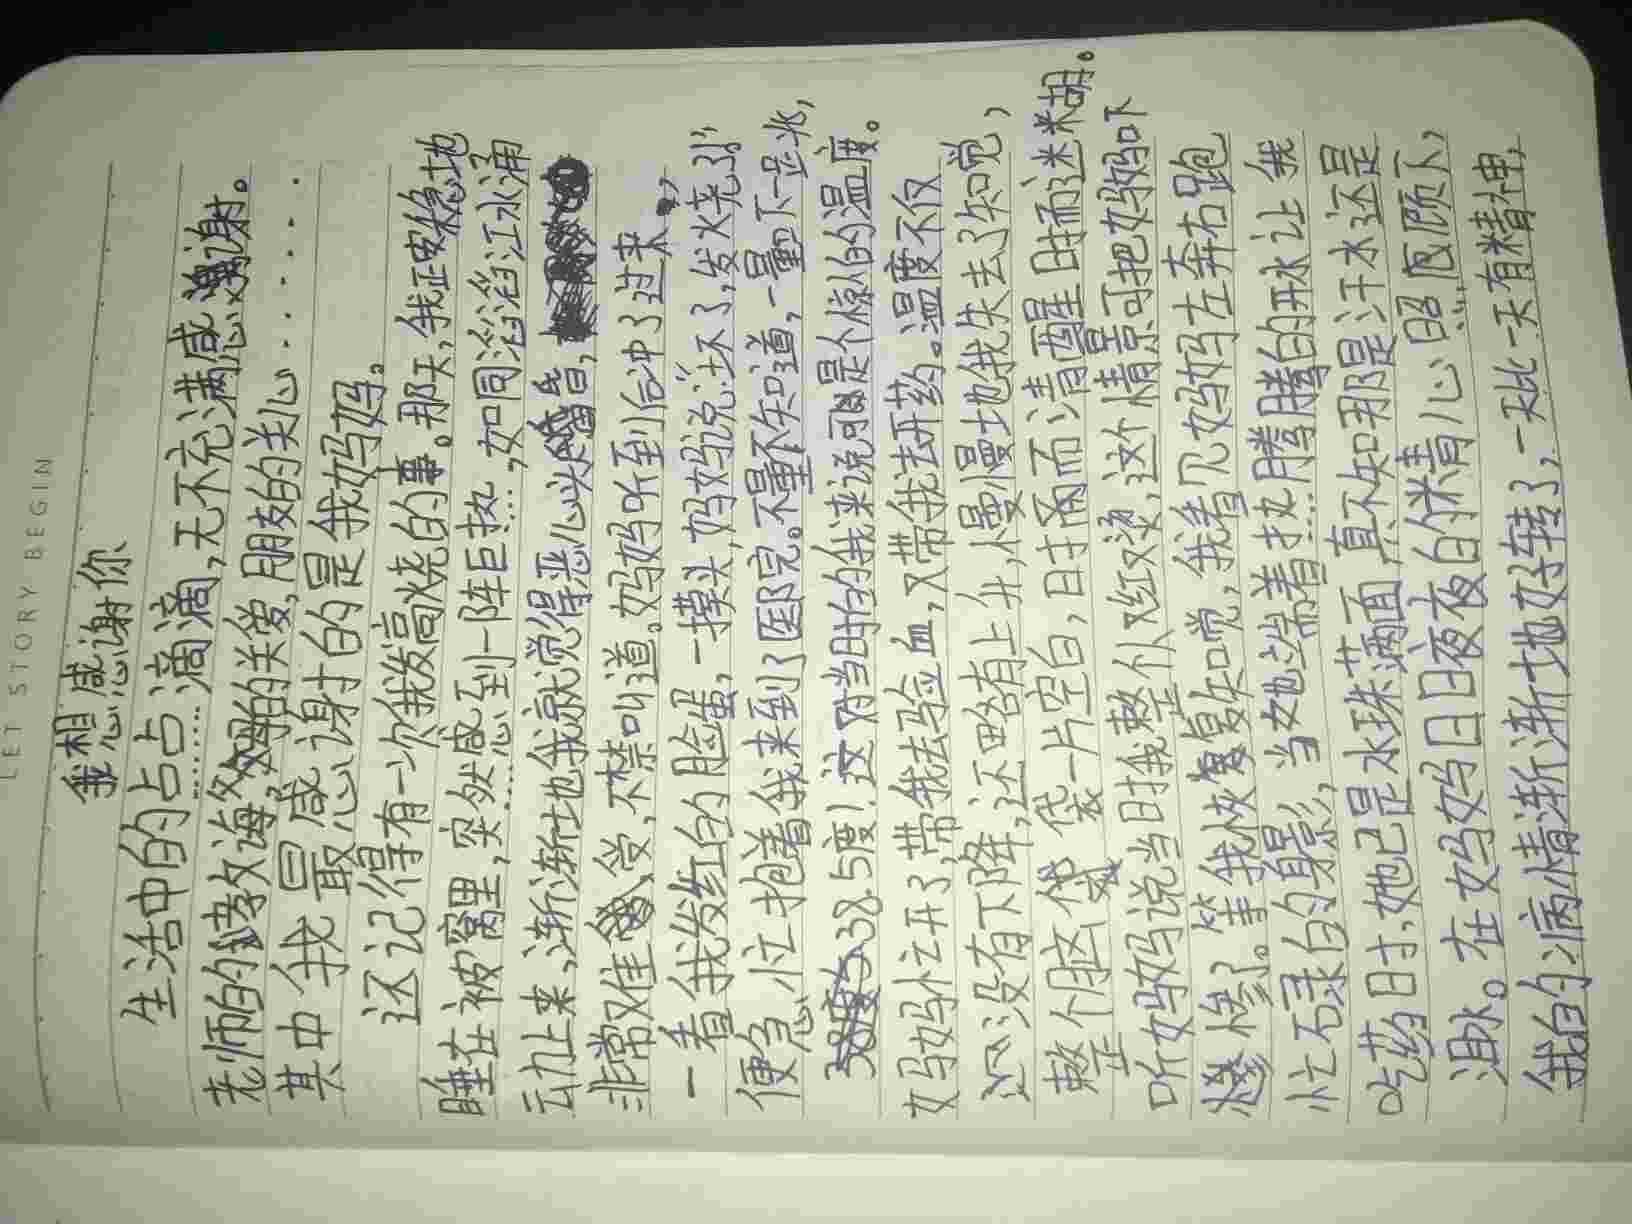 LET STORY BEGIN
我想感谢你
生活中的点点滴滴,无不充满感谢。
老师的教诲,妈妈的关爱,朋友的关心......
其中我最感谢的是我妈妈。
还记得有一次我发高烧的事。那天,我正安稳地
睡在被窝里,突然感到一阵巨热,如同滔滔江水涌
动上来,渐渐地我就觉得恶心头昏,
非常难受,不禁叫道。妈妈听到后冲了过来,
一看我发红的脸蛋,一摸头,妈妈说:“坏了,发火烧了!”
便急忙抱着我来到了医院。不量不知道,一量下一跳,
38.5度!这对当时的我来说可是个惊人的温度。
妈妈忙开了,带我去验血,又带我去开药。温度不仅
没有下降,还略有上升,慢慢地我失去了知觉,
整个脑袋一片空白,时而清醒时而迷糊。
听妈妈说当时我整个人红烫,这个情景可把妈妈吓
惨了。等我恢复知觉,我看见妈妈左奔右跑
忙碌的身影,当她端着热腾腾的开水让我
吃药时,她已是水珠满面,真不知那是汗水还是
泪水。在妈妈日日夜夜的精心照顾下,
我的病情渐渐地好转了,一天比一天有精神,